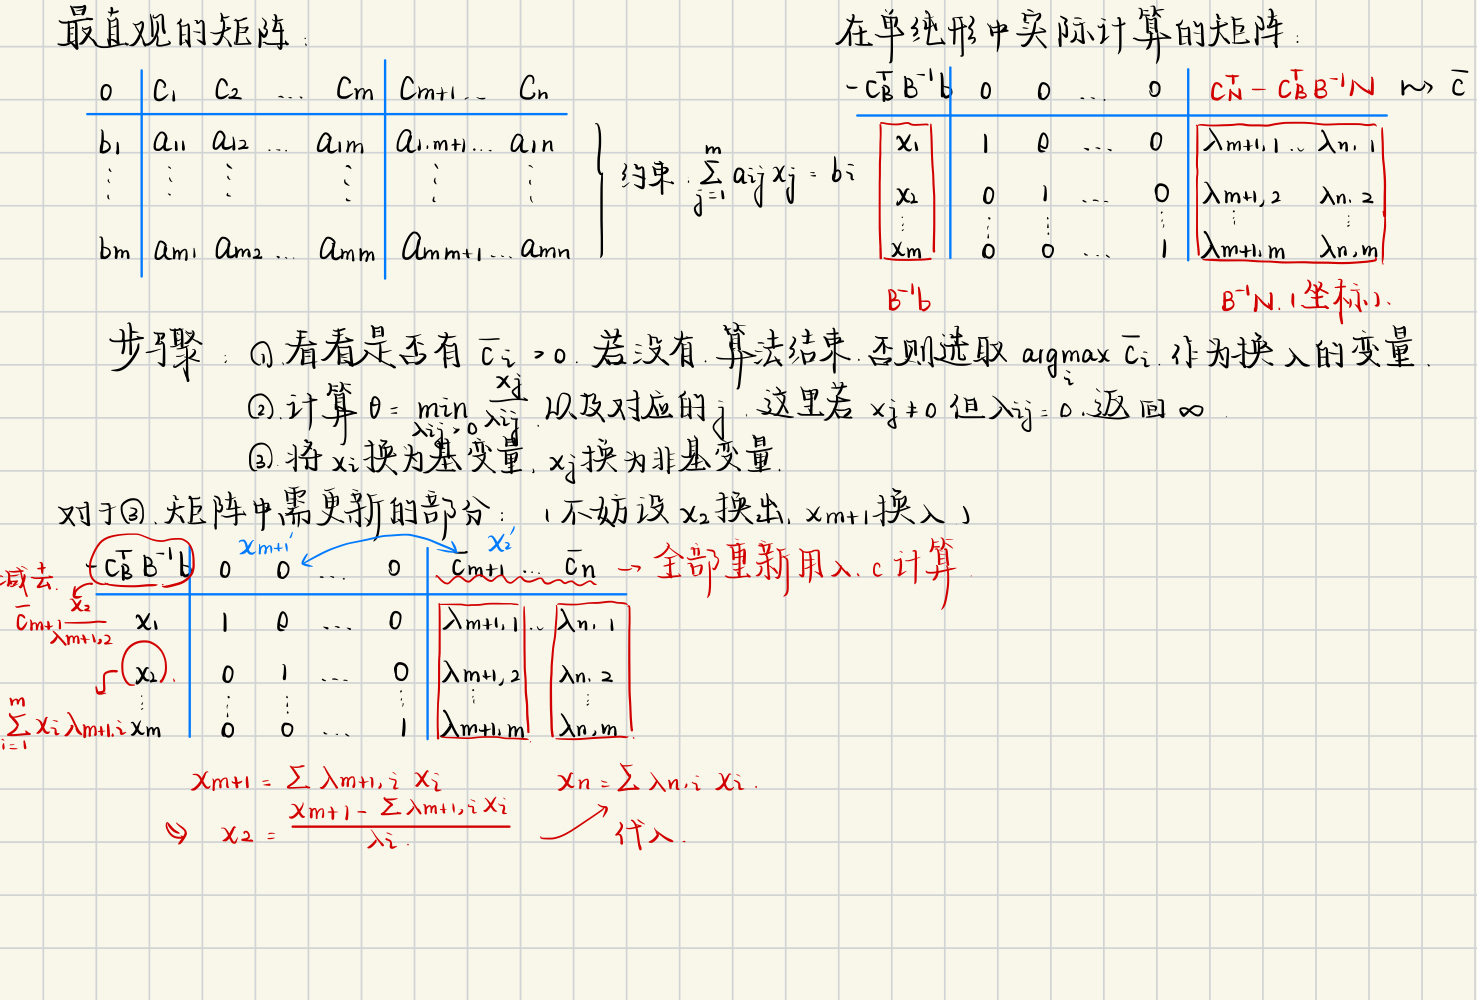 最直观的矩阵:
0 C1 C2 ... Cm Cm+1... Cn
b1 a11 a12 ... a1m a1,m+1... a1n
⋮ ⋮ ⋮ ⋮ ⋮ ⋮
bm am1 am2 ... amm amm+1... amn
约束: ∑_{j=1}^{m} aij xj = bi
在单纯形中实际计算的矩阵:
-C_B^T B^-1 b 0 0 ... 0 C_N^T - C_B^T B^-1 N ⇝ c̄
x1 1 0 ... 0 λm+1,1 .. λn,1
x2 0 1 ... 0 λm+1,2 λn,2
⋮ ⋮ ⋮ ⋮ ⋮ ⋮
xm 0 0 ... 1 λm+1,m λn,m
B^-1 b B^-1 N. (坐标).
步骤: ①.看看是否有 c̄i>0. 若没有.算法结束.否则选取 argmax_i c̄i.作为换入的变量.
②.计算 θ = min_{λij>0} xj/λij .以及对应的j.这里若 xj≠0 但 λij=0.返回∞.
③.将xi换为基变量, xj换为非基变量.
对于③.矩阵中需更新的部分: (不妨设x2换出, xm+1换入)
xm+1' x2'
-C_B^T B^-1 b 0 0 ... 0 c̄m+1 ... c̄n → 全部重新用λ.c计算.
减去
c̄m+1 x2/λm+1,2
x1 1 0 ... 0 λm+1,1 .. λn,1
x2. 0 1 ... 0 λm+1,2 λn,2
⋮ ⋮ ⋮ ⋮ ⋮ ⋮
∑_{i=1}^{m} xi λm+1,i
xm 0 0 ... 1 λm+1,m λn,m
xm+1 = ∑ λm+1,i xi xn = ∑ λn,i xi.
x2 = (xm+1 - ∑ λm+1,i xi)/λi. 代入.